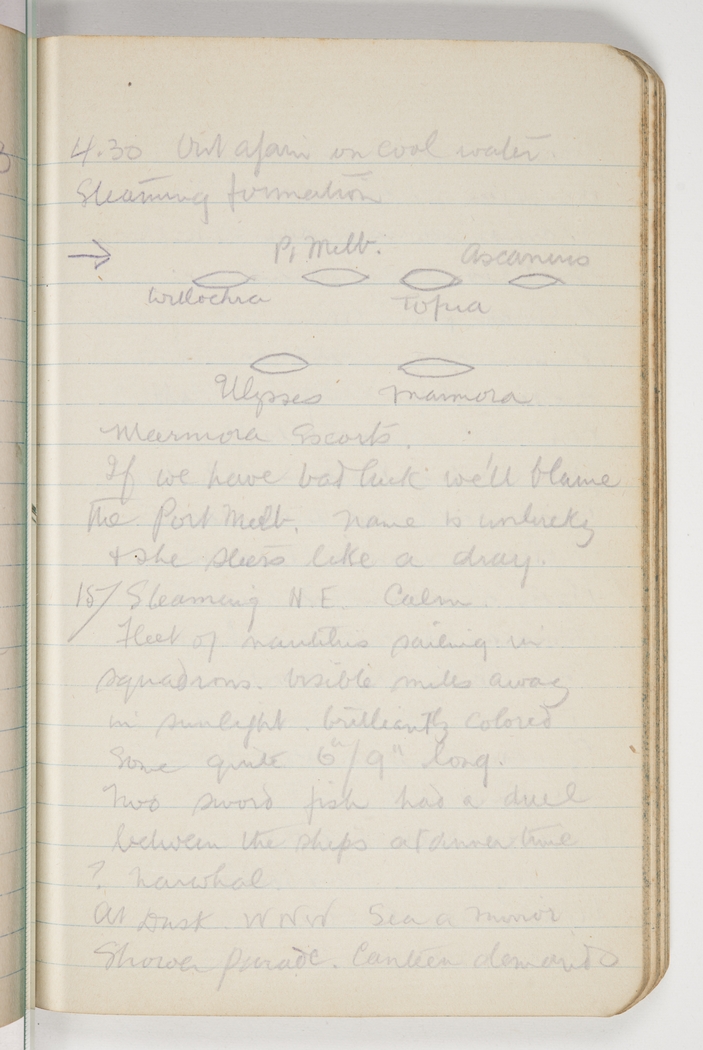 4.30 Out again on cool water
Steaming formation
→ P. Melb. Ascanius
Willochra Topua
Ulysses Marmora
Marmora Escorts.
If we have bad luck we'll blame
the Port Melb. Name is unlucky
& she steers like a dray.
15/ Steaming N.E. Calm.
Fleet of nautilus sailing in
squadrons. Visible miles away
in sunlight. brilliantly colored
Some quite 6"/9" long.
Two sword fish had a duel
between the ships at dinner time
? Narwhal.
At Dusk. WNW Sea a mirror
Shower parade. Canteen demands
3